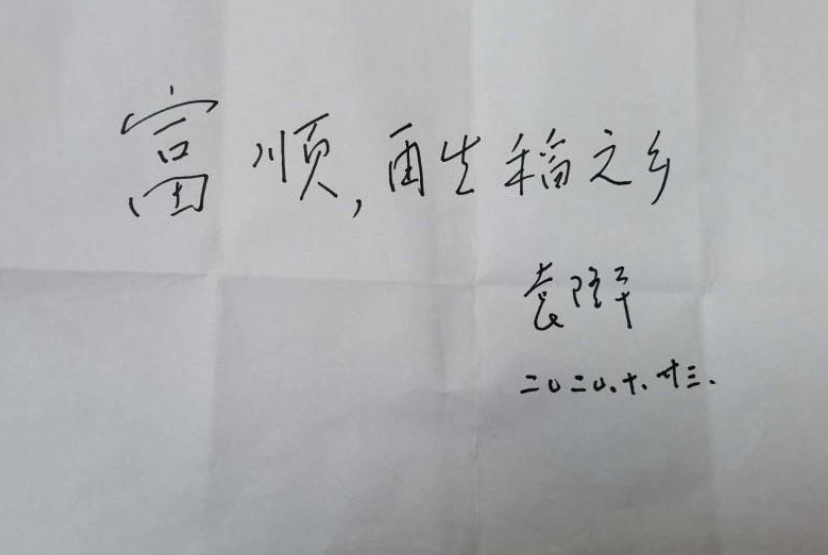 富顺,再生稻之乡
袁隆平
二〇二〇.十.廿三.